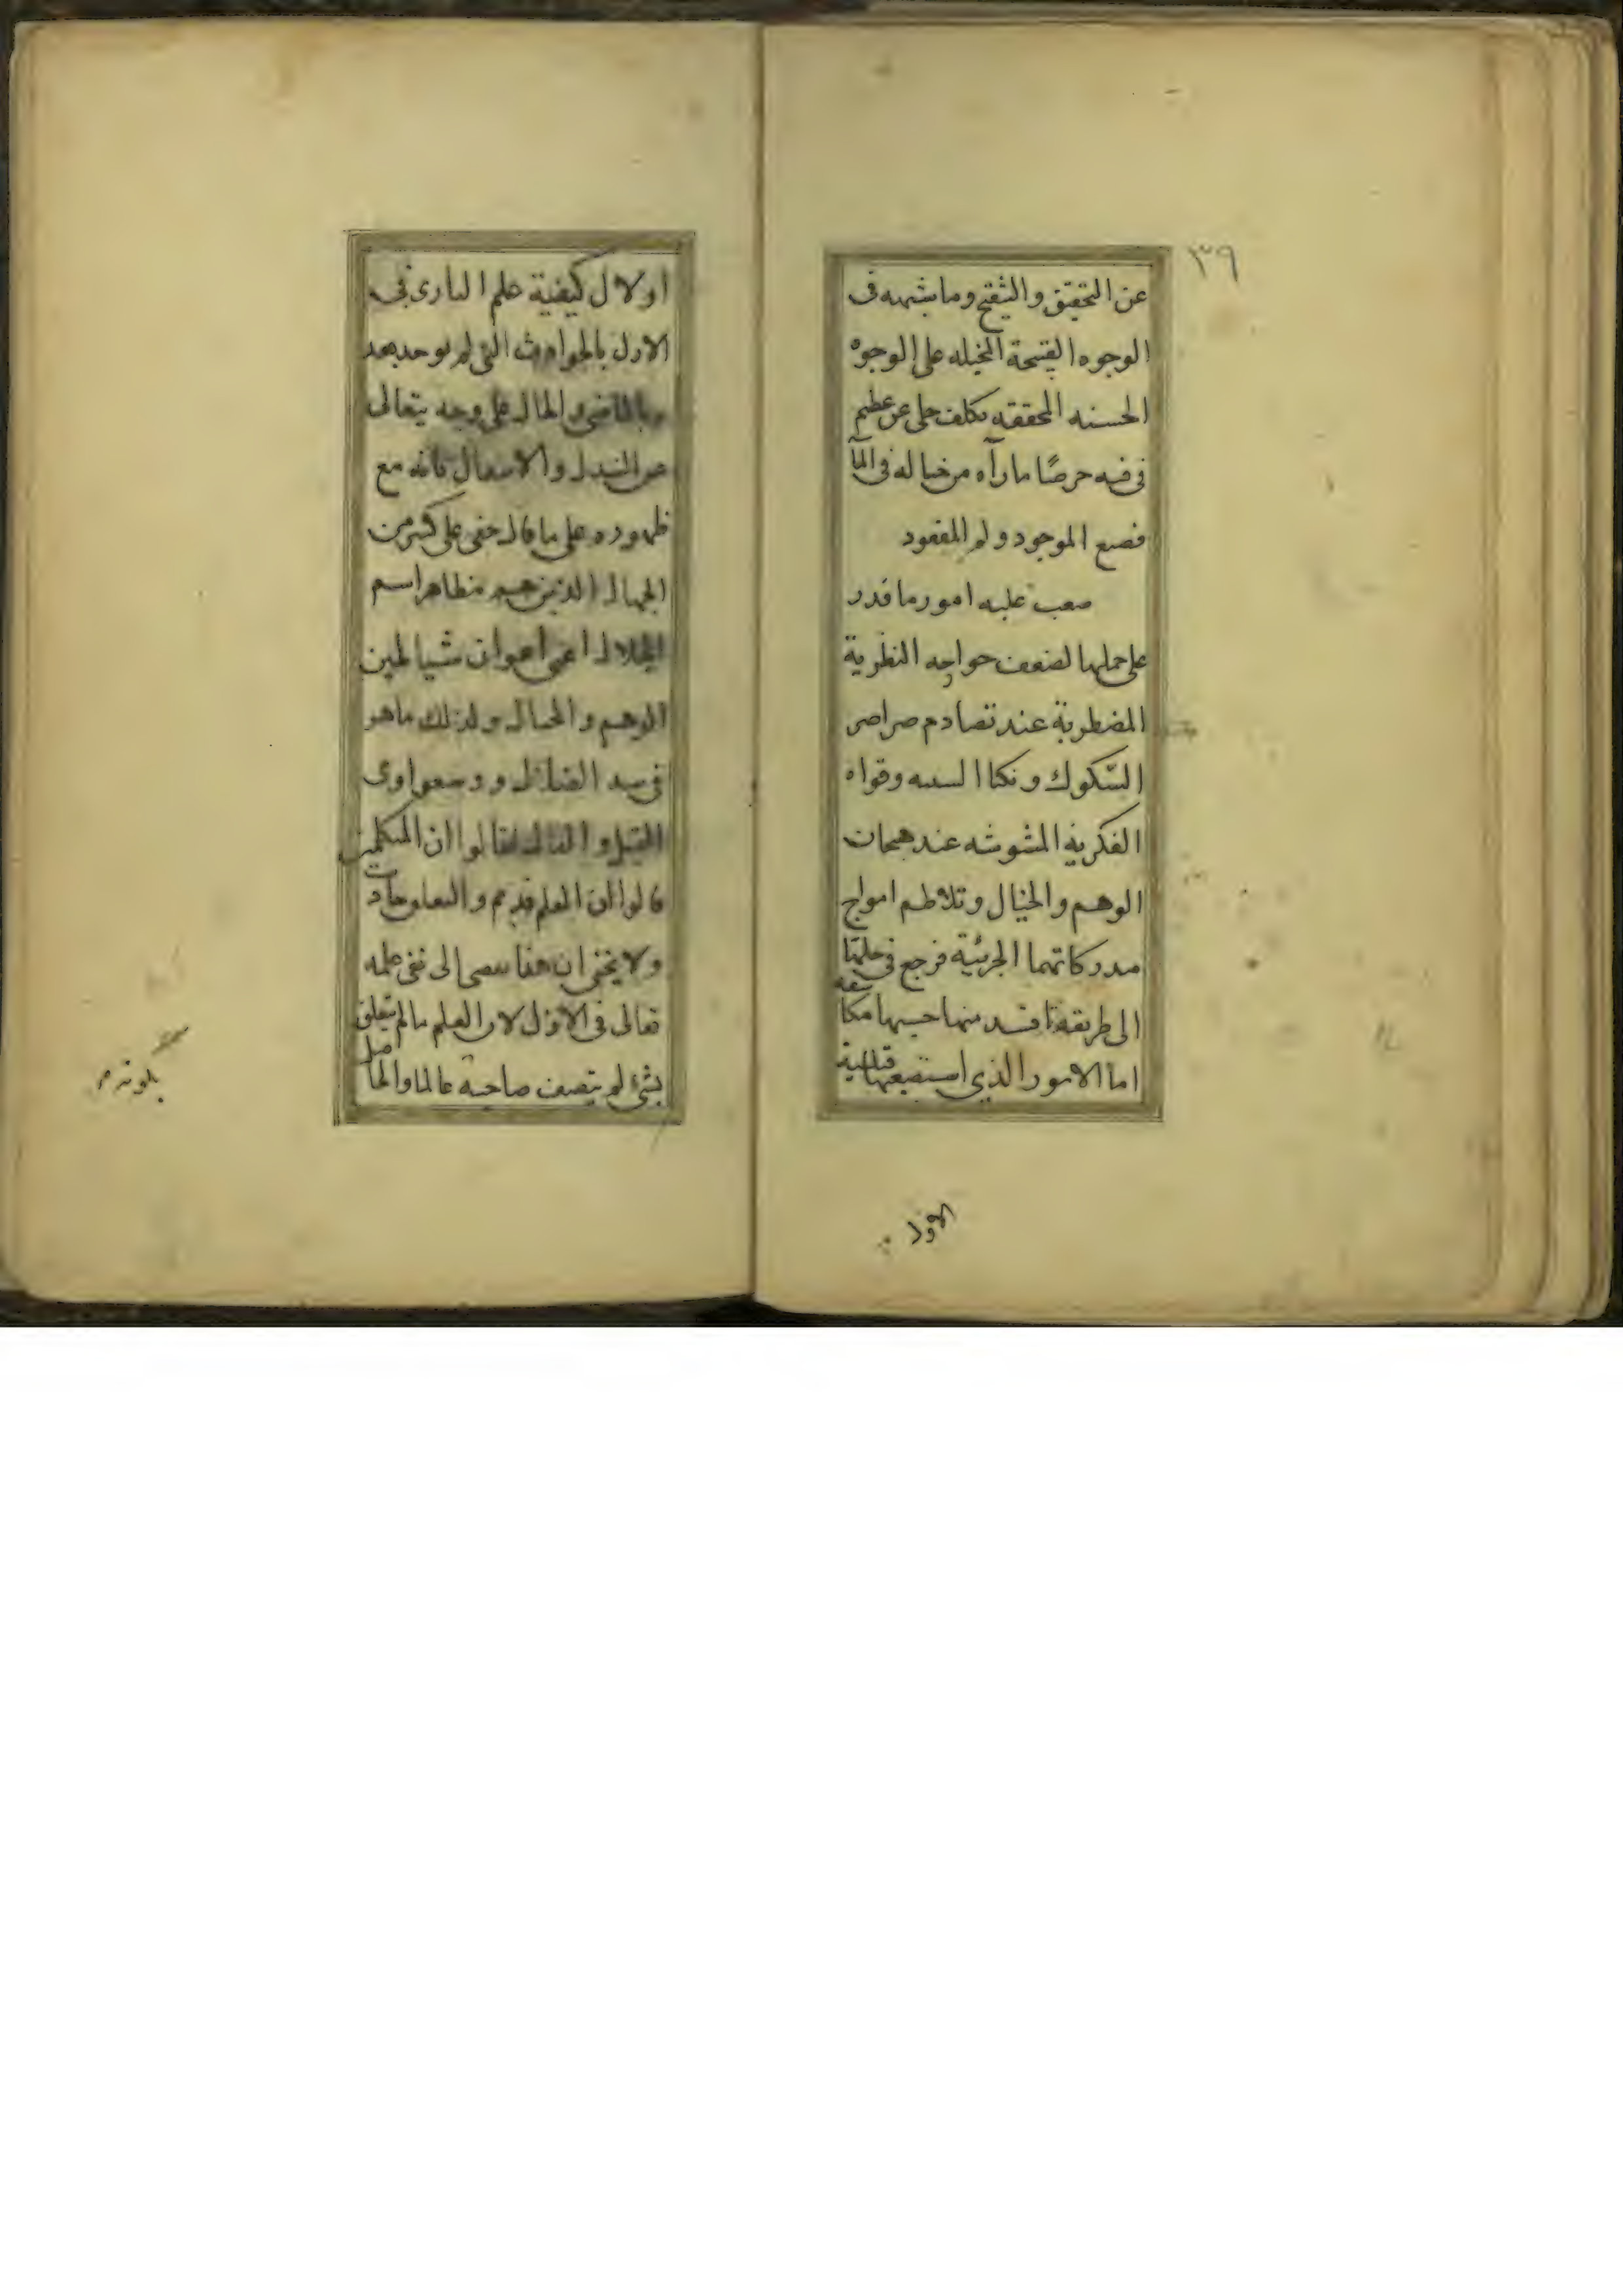 ٣٦
عن التحقيق والتنقيح وما يشبهه فى
الوجوه القبيحة المخيله على الوجوه
الحسنه المحققه كلف حلى عن عظيم
فى فيه حرصًا ما رآه من خياله فى المآ
فضيع الموجود ولم المفقود
صعب عليه امور ما قدر
على حملها لضعف النظرية
المضطربة عند تصادم صراصر
الشكوك وقواه
الفكرية المشوشه عند هيجان
الوهم والخيال وتلاطم امواج
مدركاتهما الجزئية فرجع فى
الى طريقه منها حسبها
اما الامور الذى
الاول
اولا ل كيفية علم البارى فى
الازل بالحوادث التى لم توجد بعد
وبالماضى والحال على وجه يتعالى
عن التبدل والانتقال فانه مع
ظهوره على ما قال خفى على كثير من
الجهال الذين هم مظاهر اسم
الجلال اعنى اعوان شياطين
الوهم والخيال ولذلك ما هو
فى
القيل والقال فقالوا ان المتكلمين
قالوا ان العلم قديم والتعلق حادث
ولا يخفى ان هذا يفضى الى نفى علمه
تعالى فى الازل لان العلم ما لم يتعلق
بشئ لم يتصف صاحبه عالما